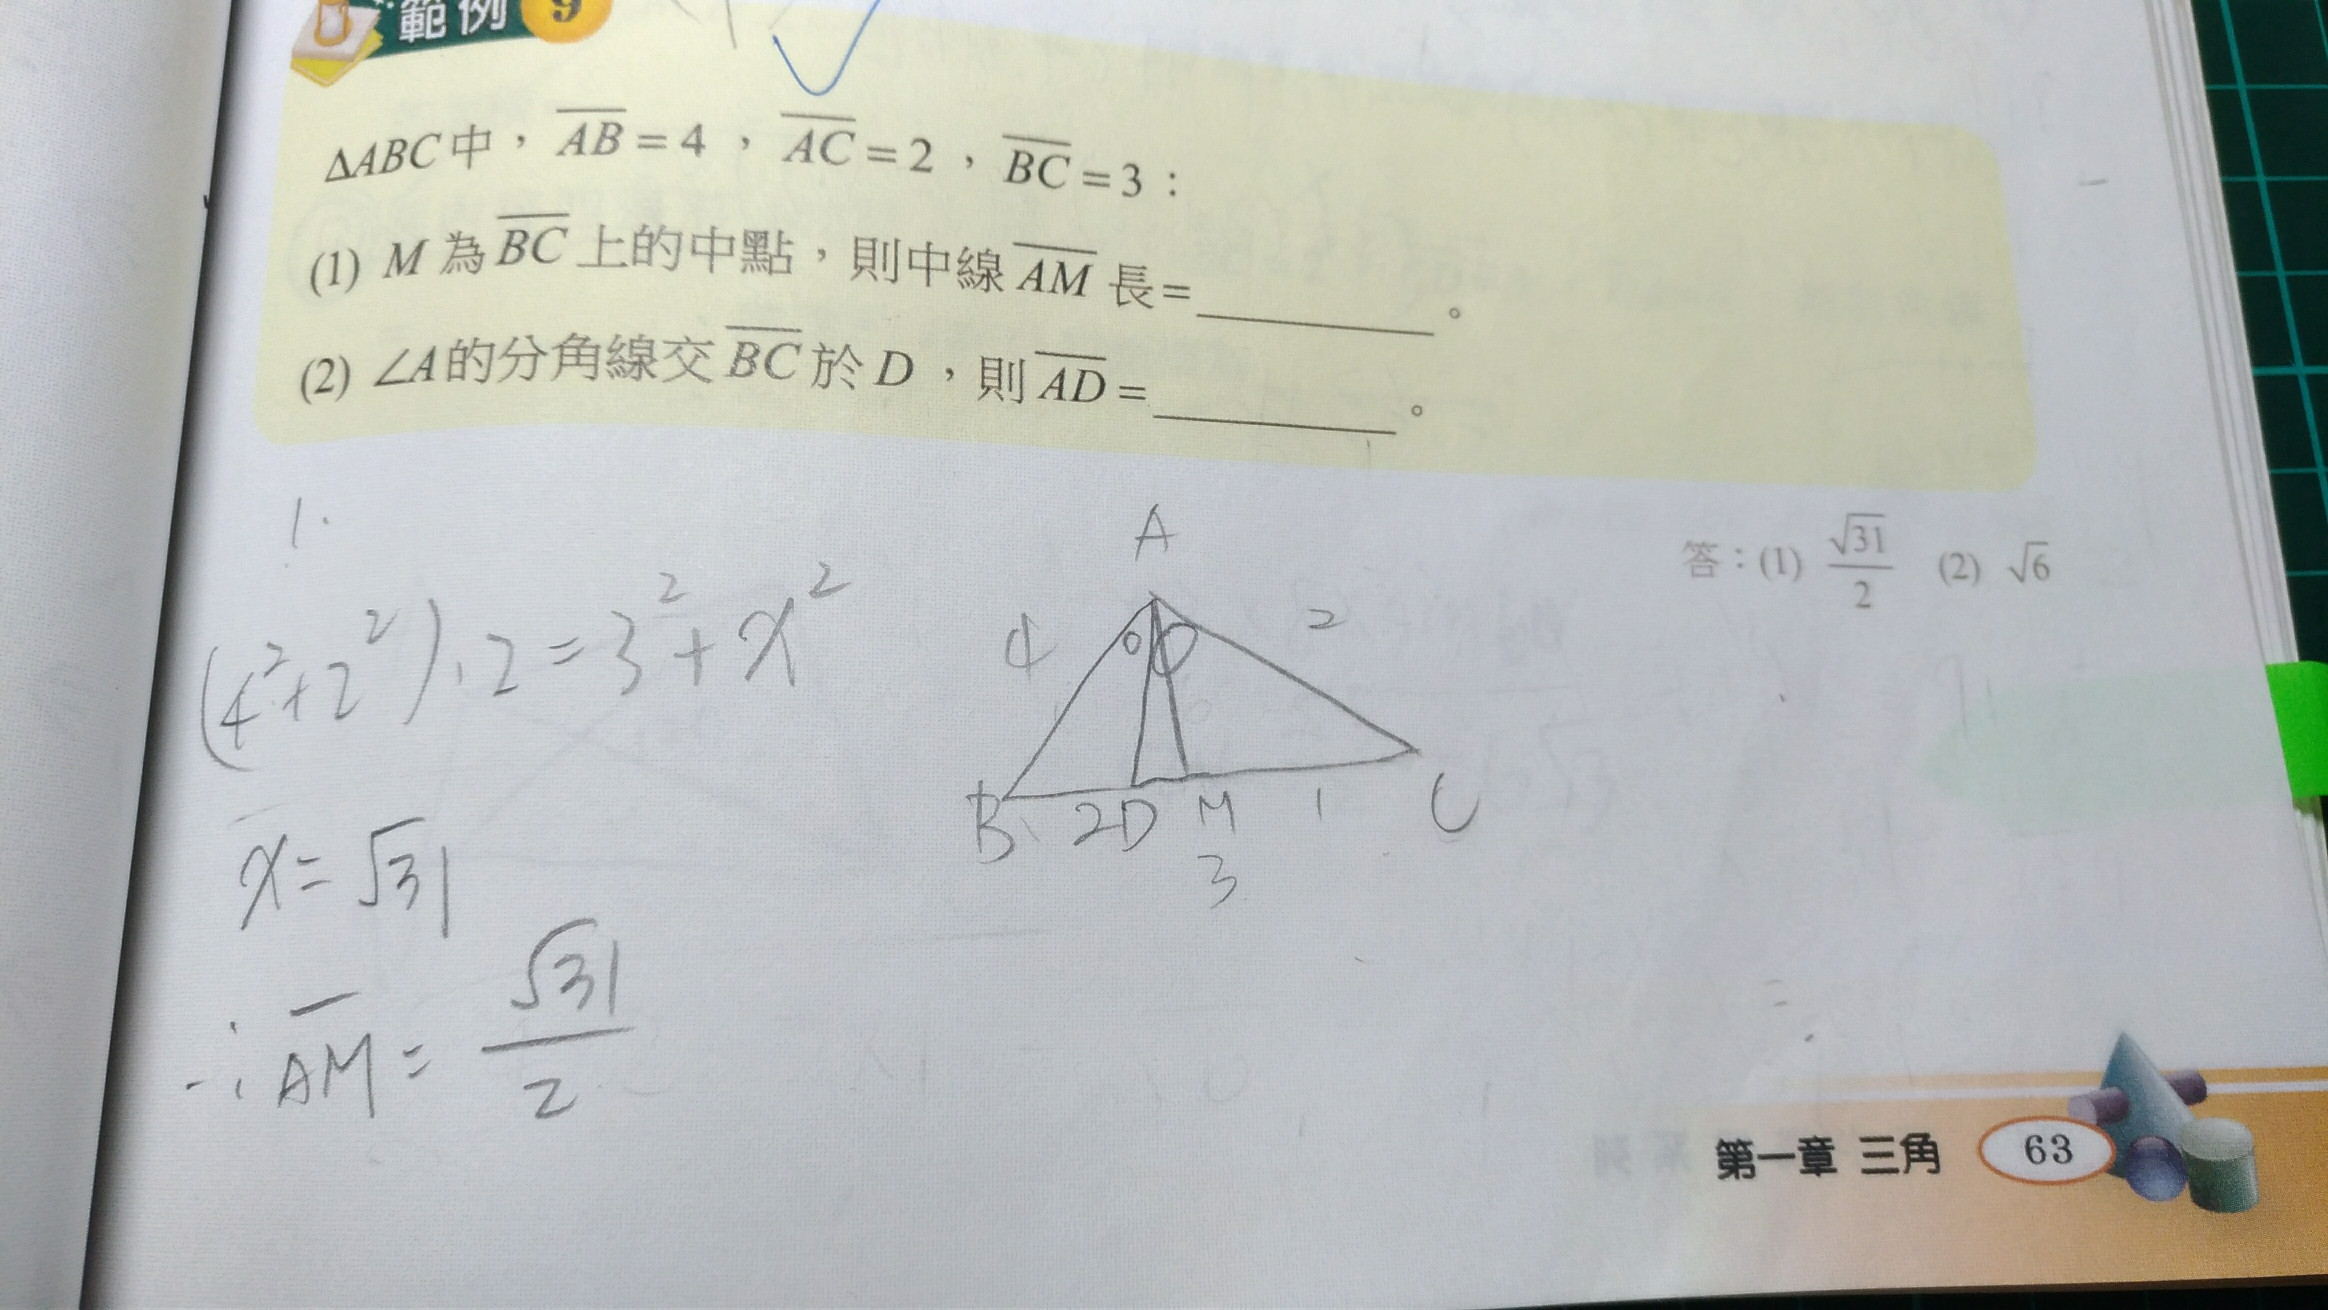 範例 9
△ABC中，AB=4，AC=2，BC=3：
(1) M 為 BC 上的中點，則中線 AM 長=________。
(2) ∠A的分角線交 BC 於 D，則 AD=________。
答：(1) √31/2 (2) √6
1.
(4²+2²)·2=3²+x²
x=√31
∴ AM = √31/2
A
4
2
B 2 D M 1 C
3
第一章 三角 63